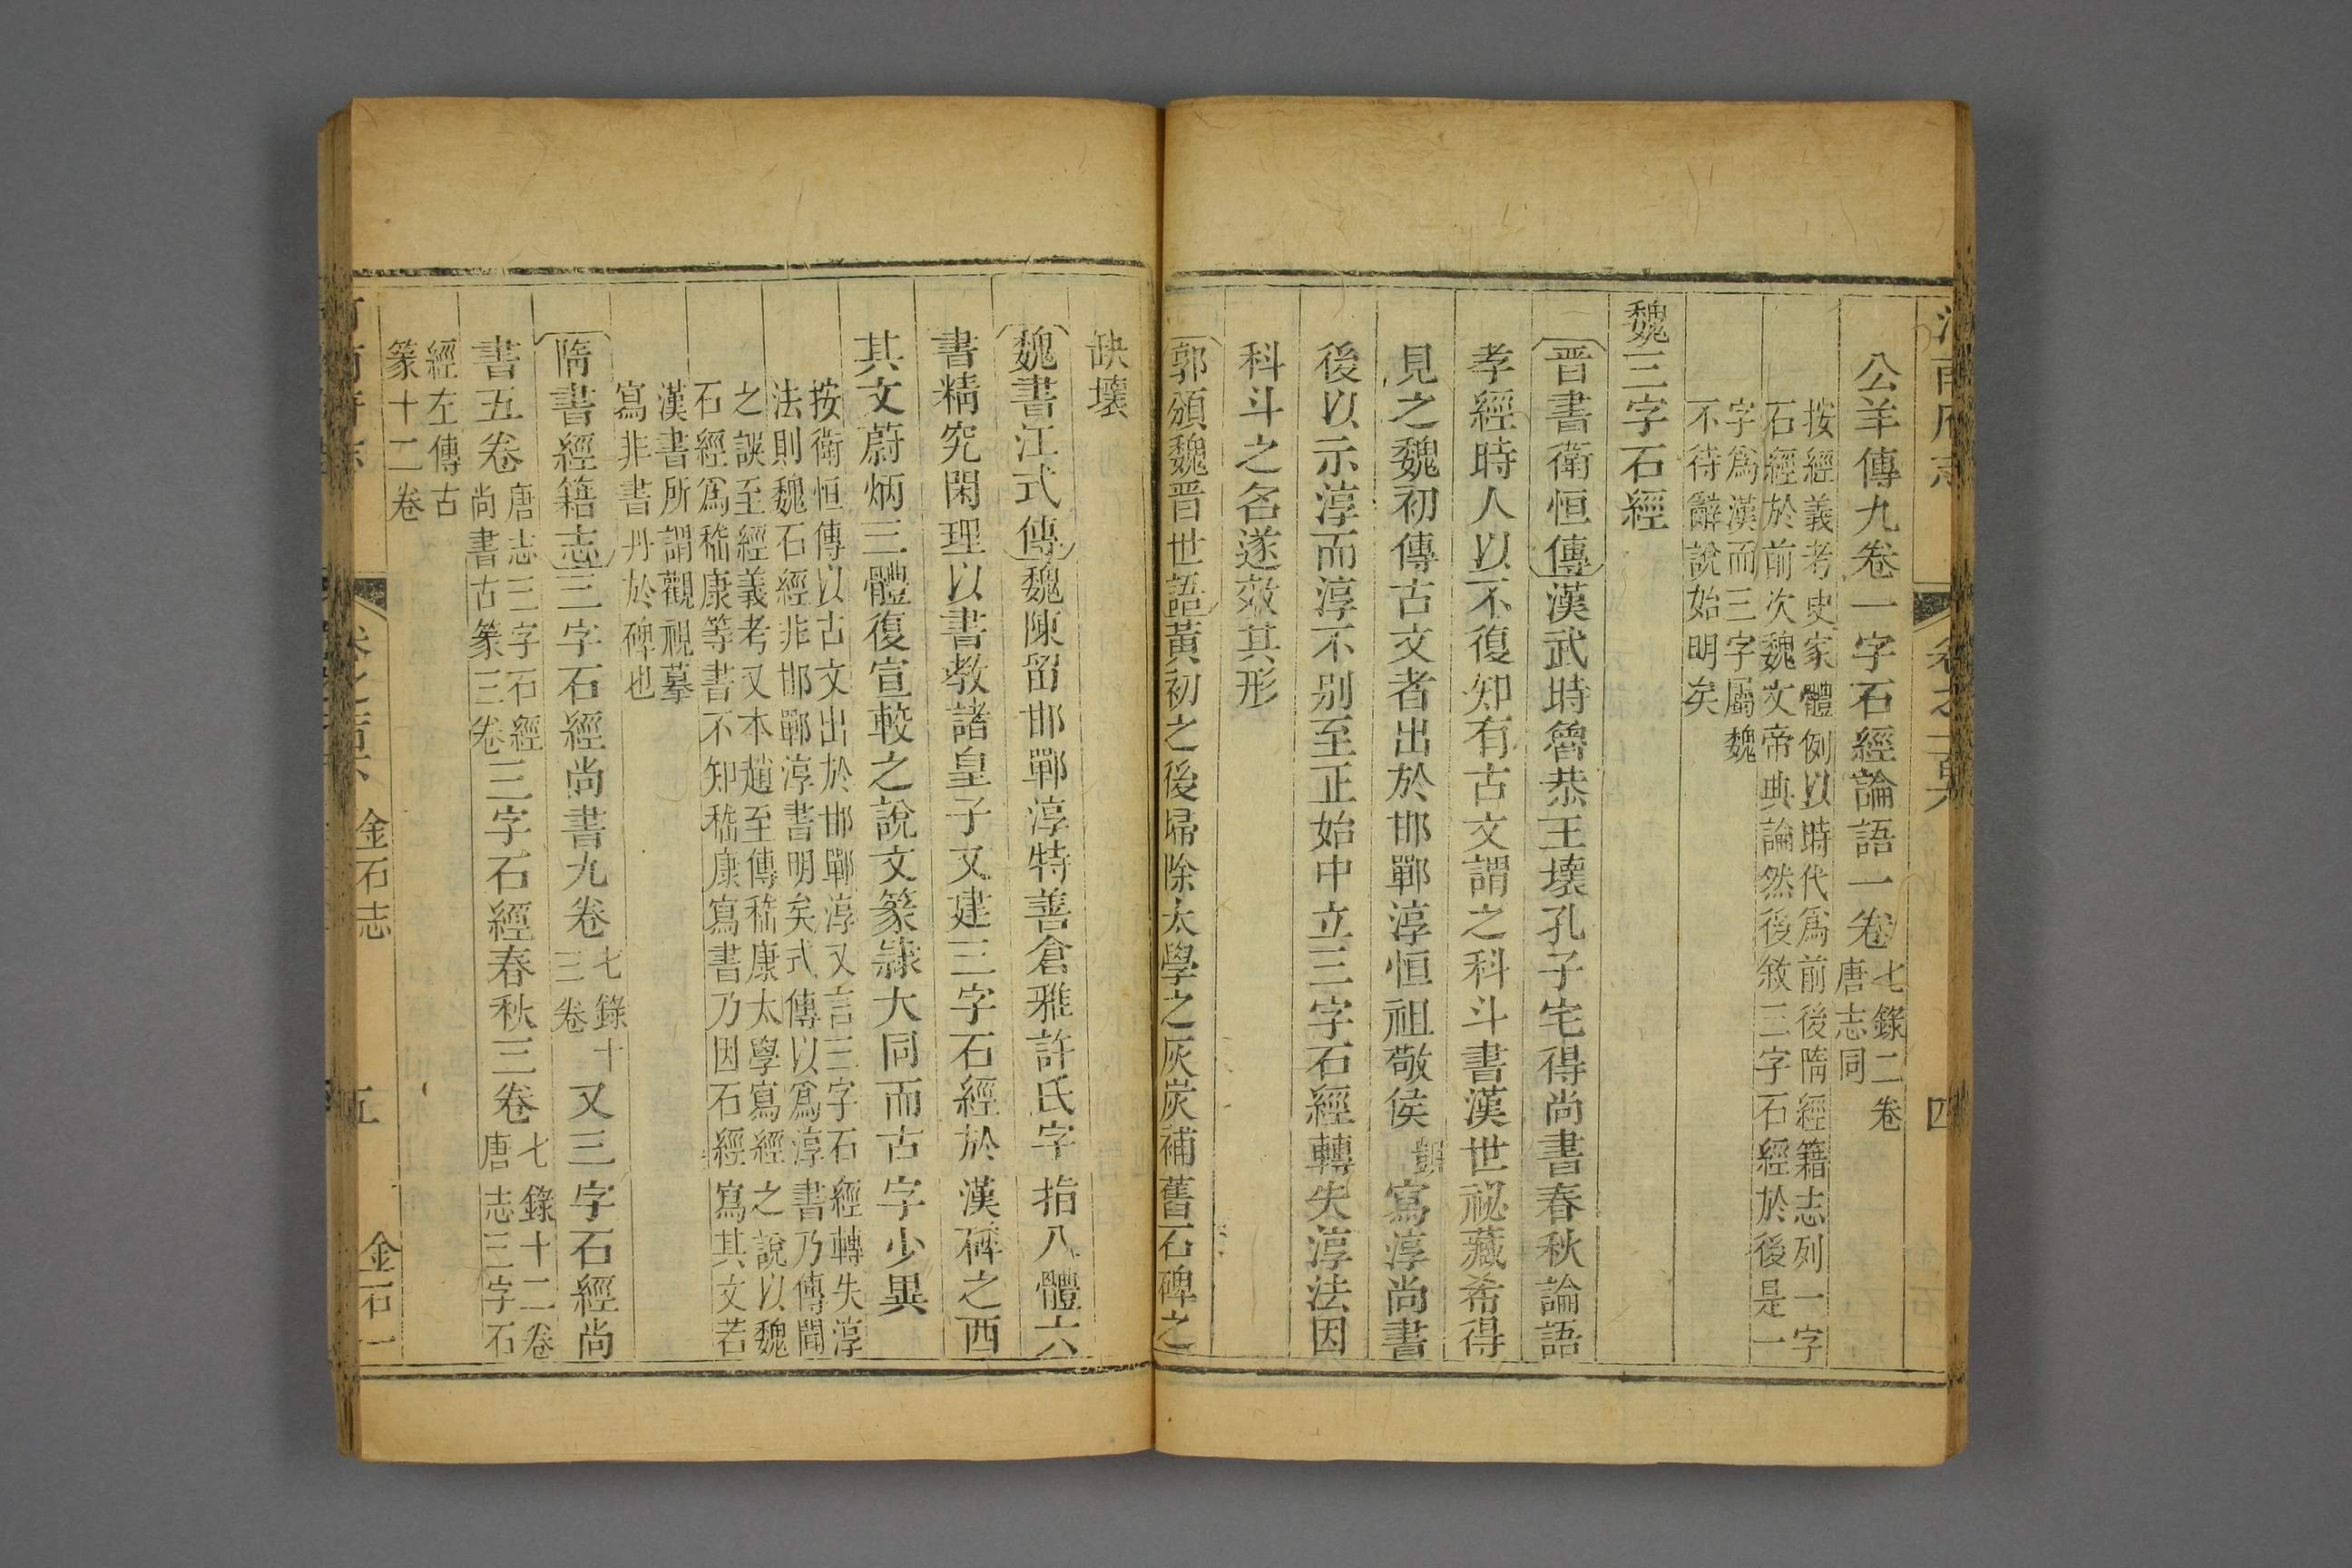 公羊傳九卷一字石經論語一卷七錄二卷唐志同
按經義考史家體例以時代爲前後隋經籍志列一字
石經於前次魏文帝典論然後敘三字石經於後是一
字爲漢而三字屬魏
不待辭說始明矣
魏三字石經
晋書衛恒傳漢武時魯恭王壞孔子宅得尚書春秋論語
孝經時人以不復知有古文謂之科斗書漢世祕藏希得
見之魏初傳古文者出於邯鄲淳恒祖敬侯覬寫淳尚書
後以示淳而淳不別至正始中立三字石經轉失淳法因
科斗之名遂效其形
郭頒魏晋世語黃初之後埽除太學之灰炭補舊石碑之
缺壞
魏書江式傳魏陳留邯鄲淳特善倉雅許氏字指八體六
書精究閑理以書教諸皇子又建三字石經於漢碑之西
其文蔚炳三體復宣較之說文篆隸大同而古字少異
按衛恒傳以古文出於邯鄲淳又言三字石經轉失淳
法則魏石經非邯鄲淳書明矣式傳以爲淳書乃傳聞
之誤至經義考又本趙至傳嵇康太學寫經之說以魏
石經爲嵇康等書不知嵇康寫書乃因石經寫其文若
漢書所謂觀視摹
寫非書丹於碑也
隋書經籍志三字石經尚書九卷七錄十三卷又三字石經尚
書五卷唐志三字石經尚書古篆三卷三字石經春秋三卷七錄十二卷唐志三字石
經左傳古
篆十二卷
金石志
五
金石一